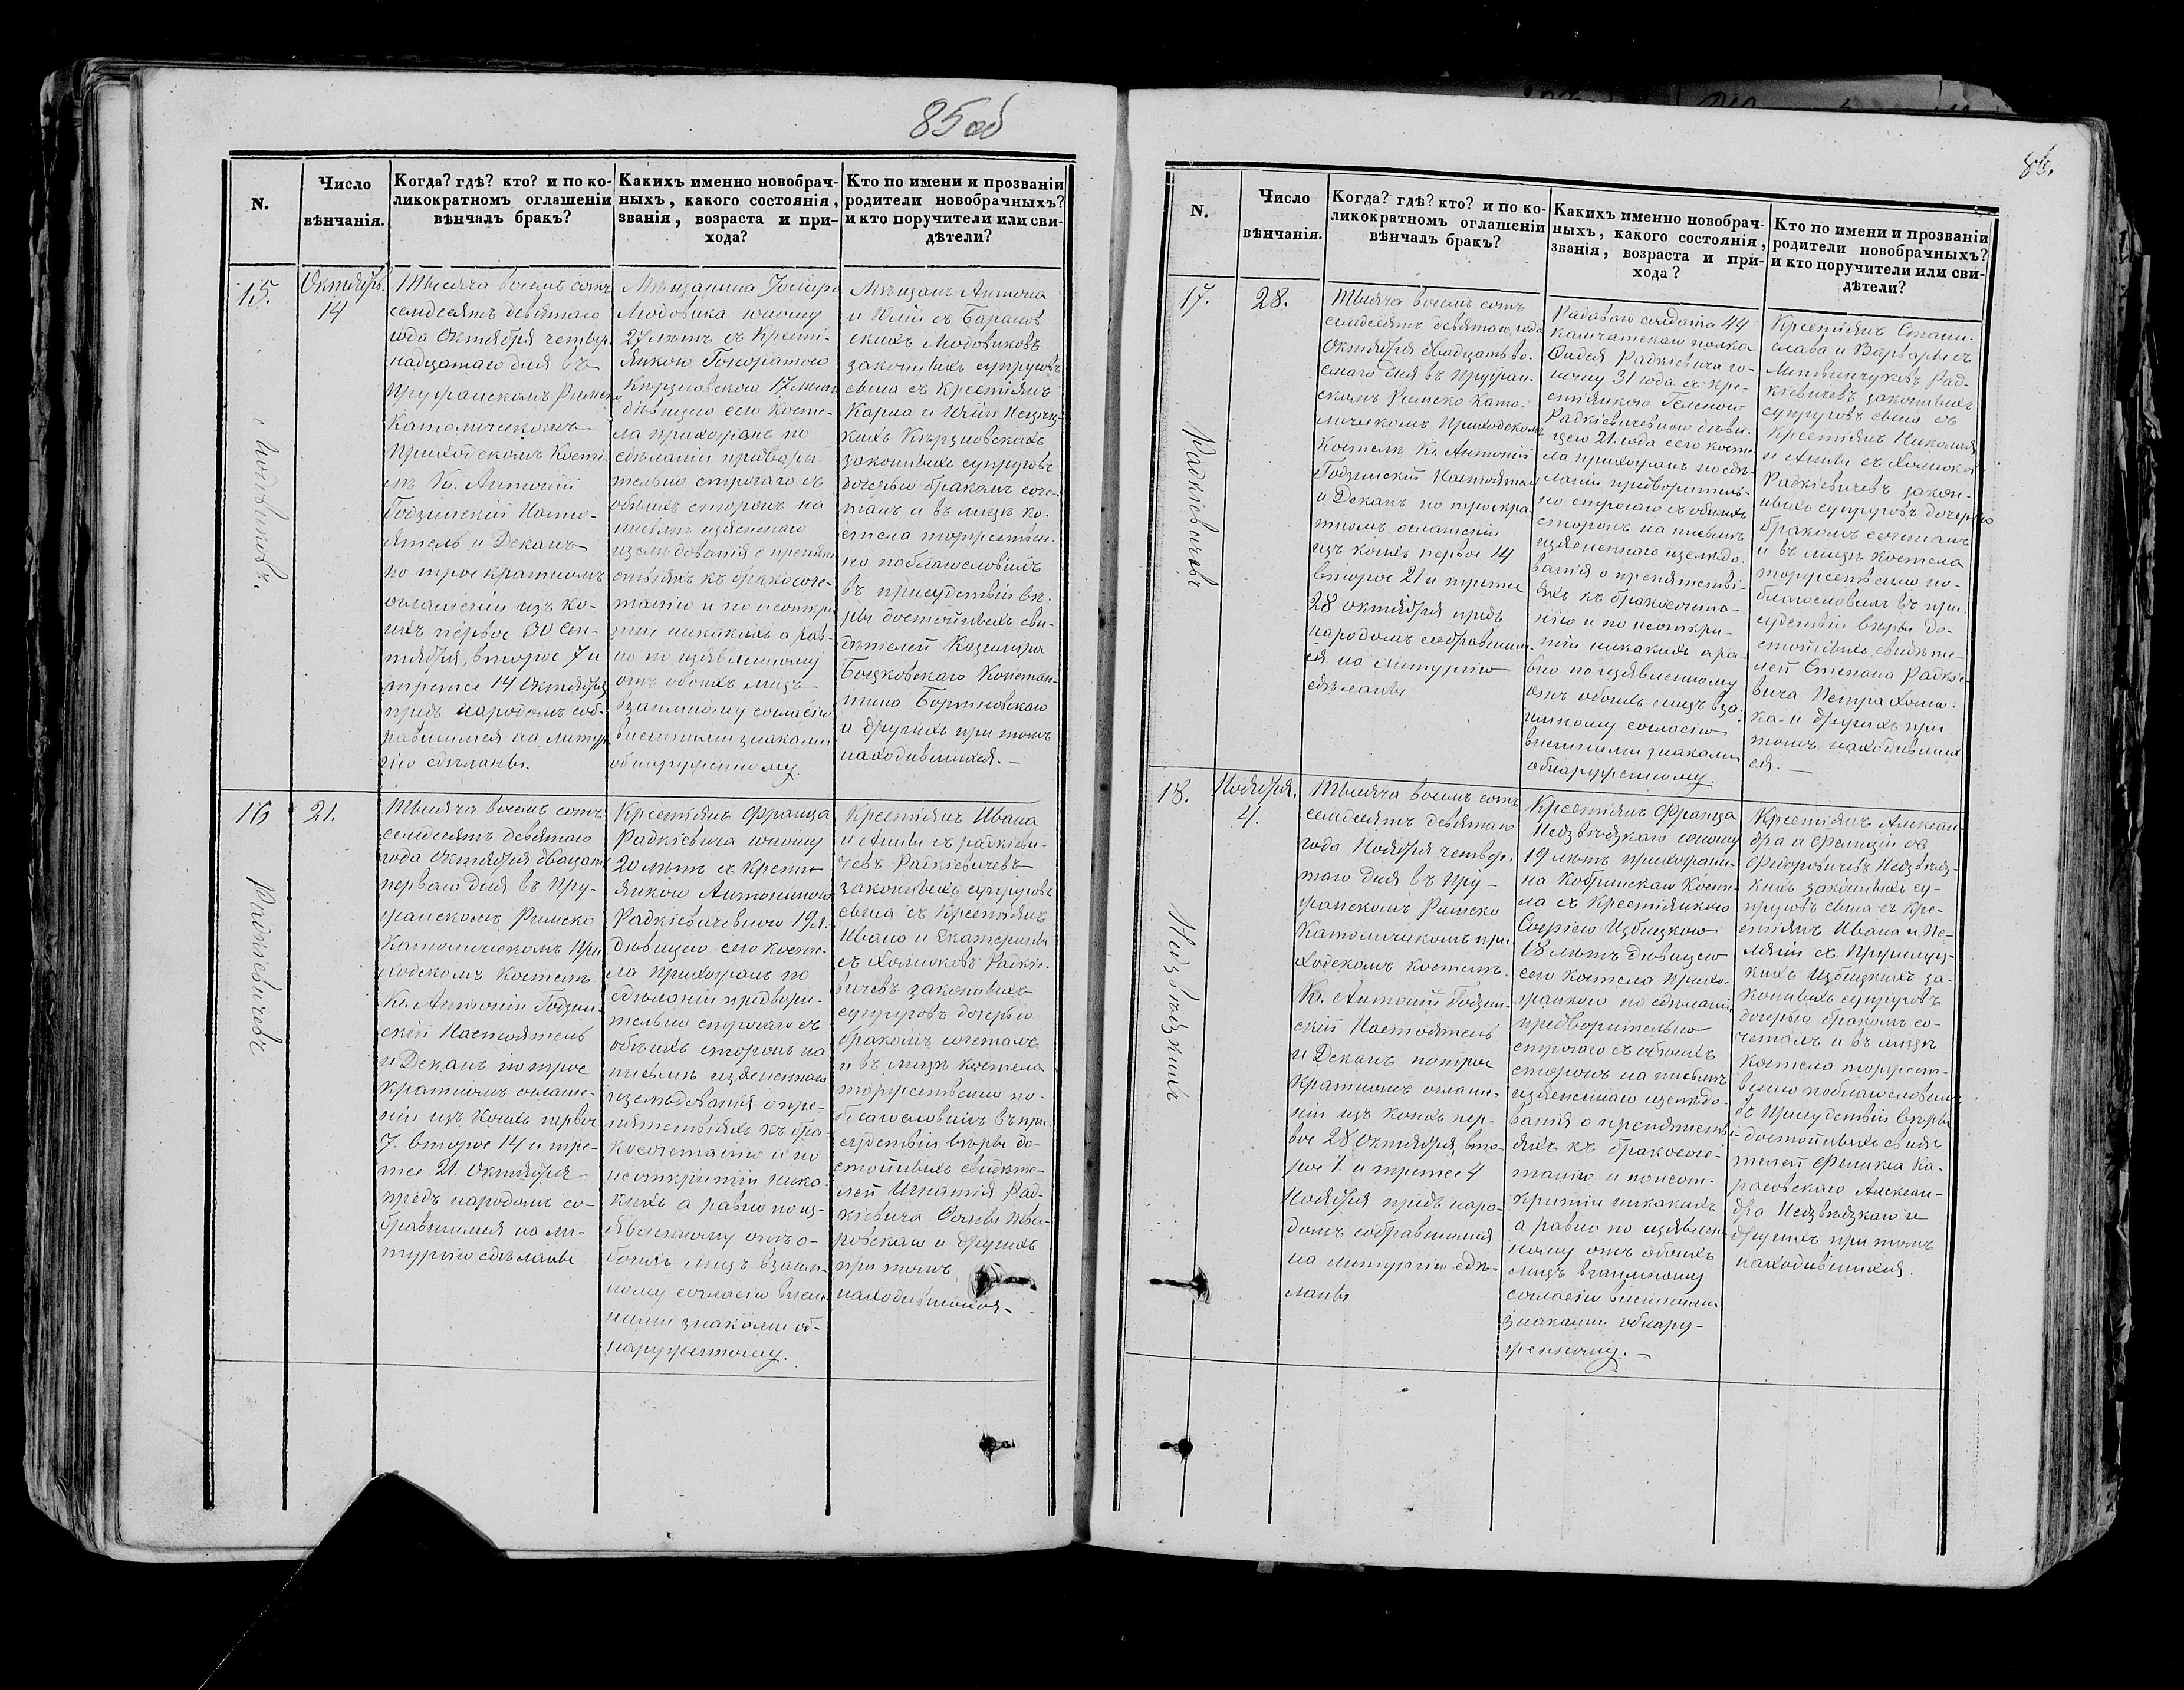 85 об
N.
Число
вѣнчанія.
Когда? гдѣ? кто? и по ко-
ликократномъ оглашеніи
вѣнчалъ бракъ?
Какихъ именно новобрач-
ныхъ, какого состоянія,
званія, возраста и при-
хода?
Кто по имени и прозваніи
родители новобрачныхъ?
и кто поручители или сви-
дѣтели?
15.
Октябрь.
14
Модѣликовъ.
Тысяча восемь сотъ
семдесятъ девятаго
года Октября четыр-
надцатаго дня въ
Пружанскомъ Римско
Католическомъ
Приходскомъ Косте-
лѣ Кс. Антоній
Годзинскій Насто-
ятель и Деканъ
по трое кратномъ
оглашеніи изъ ко-
ихъ первое 30 Сен-
тября, второе 7 и
третее 14 Октября
предъ народомъ соб-
равшимся на литур
гію сдѣланы.
Мѣщанина
юношу
27 лѣтъ съ Крест-
янкою Гоноратою
17 лѣтъ
дѣвицею сего косте-
ла прихожанъ по
сдѣланіи предвори
тельно строгаго съ
обѣихъ сторонъ на
письмѣ
изслѣдованія о препят
ствіяхъ къ бракосоче-
танію и по неоткры
тіи никакихъ а рав-
но по изявленному
отъ обоихъ лицъ
взаимному согласію
внешними знаками
обнаруженному.
Мѣщанъ Антона
и Юліи съ Баранов
скихъ
законныхъ супруговъ
сына съ крестьянъ
Карла и
кихъ
законныхъ супруговъ
дочерью бракомъ соче-
талъ и въ лицѣ ко-
стела торжествен-
но поблагословилъ
въ присудствіи вѣ-
ры достойныхъ сви-
дѣтелей Казимира
Константина
и другихъ при томъ
находившихся.—
16
21.
Радкіевичевъ
Тысяча восемь сотъ
семдесятъ девятаго
года Октября двадцать
перваго дня въ Пру-
жанскомъ Римско
Католическомъ При
ходскомъ Костелѣ
Кс. Антоній Годзин-
скій Настоятель
и Деканъ по трое
кратномъ оглаше-
ніи изъ коихъ первое
7. второе 14 и тре-
тее 21. Октября
предъ народомъ со-
бравшимся на ли-
тургію сдѣланы
Крестьянъ Франца
Радкіевича юношу
20 лѣтъ съ Крест
янкою Антониною
Радкіевичевною 19 л.
дѣвицею сего косте-
ла прихожанъ по
сдѣланіи предвори-
тельно строгаго съ
обѣихъ сторонъ на
письмѣ
изслѣдованія о пре-
пятствіяхъ къ бра
косочетанію и по
неоткрытіи ника-
кихъ а равно по из-
явленному отъ о-
боихъ лицъ взаим-
ному согласію внеш
ними знаками об-
наруженному.
Крестьянъ Ивана
и Анны съ Радкіеви-
чевъ Радкіевичевъ
законныхъ супруговъ
сына съ Крестьянъ
Ивана и Екатерины
съ Хомюковъ Радкіе-
вичевъ законныхъ
супруговъ дочерью
бракомъ сочеталъ
и въ лицѣ костела
торжественно по-
благословилъ въ при
судствіи вѣры до-
стойныхъ свидѣте-
лей Игнатія Рад-
кіевича
и другихъ
при томъ
находившихся-
86.
N.
Число
вѣнчанія.
Когда? гдѣ? кто? и по ко-
ликократномъ оглашеніи
вѣнчалъ бракъ?
Какихъ именно новобрач-
ныхъ, какого состоянія,
званія, возраста и при-
хода?
Кто по имени и прозваніи
родители новобрачныхъ?
и кто поручители или сви-
дѣтели?
17.
28.
Радкіевичевъ
Тысяча восемь сотъ
семдесятъ девятаго года
Октября двадцать во-
смаго дня въ Пружан-
скомъ Римско Като-
лическомъ Приходскомъ
Костелѣ Кс. Антоній
Годзинскій Настоятель
и Деканъ по троекра
тномъ оглашеніи
изъ коихъ первое 14
второе 21 и третее
28 Октября предъ
народомъ собравшим-
ся на литургію
сдѣланы
Рядового солдата 44
Камчатскаго полка
Фадея Радкіевича ю-
ношу 31 года съ кре-
стьянкою Геленою
Радкіевичевною дѣви-
цею 21. года сего косте
ла прихожанъ по сдѣ-
ланіи предворитель-
но строгаго съ обѣихъ
сторонъ на письмѣ
изслѣдо-
ванія о препятстві-
яхъ къ бракосочета-
нію и по неоткры-
тіи никакихъ а ра-
вно по изявленному
отъ обоихъ лицъ вза-
имному согласію
внешними знаками
обнаруженному.
Крестьянъ Стани-
слава и Варвары съ
Литвинчуковъ Рад-
кіевичевъ законныхъ
супруговъ сына съ
Крестьянъ Николая
и Анны съ Хомюков
Радкіевичевъ закон-
ныхъ супруговъ дочерью
бракомъ сочеталъ
и въ лицѣ костела
торжественно по-
благословилъ въ при-
судствіи вѣры до-
стойныхъ свидѣте-
лей Степана Радкіе-
вича Петра Хомю-
ка и другихъ при
томъ находивших
ся.—
18.
Ноября.
4.
Недзвѣдзкихъ
Тысяча восемь сотъ
семдесятъ девятаго
года Ноября четвер-
таго дня въ Пру-
жанскомъ Римско
Католическомъ при
ходскомъ костелѣ.
Кс. Антоній Годзин-
скій Настоятель
и Деканъ по трое
кратномъ оглаше-
ніи изъ коихъ пер-
вое 28 Октября вто-
рое 1. и третее 4
Ноября предъ наро-
домъ собравшимся
на литургію сдѣ-
ланы
Крестьянъ Франца
Недзвѣдзкаго юношу
19 лѣтъ прихожани-
на Кобринскаго Косте-
ла съ Крестьянкою
Софіею Избицкою
18 лѣтъ дѣвицею
сего костела прихо-
жанкою по сдѣланіи
предворительно
строгаго съ обѣихъ
сторонъ на письмѣ
изслѣдо-
ванія о препятстві-
яхъ къ бракосоче-
танію и по неот-
крытіи никакихъ
а равно по изявлен-
ному отъ обоихъ
лицъ взаимному
согласію внешними
знаками обнару-
женному.—
Крестьянъ Алексан-
дра и Фелиціи съ
Федоровичевъ Недзвѣдз-
кихъ законныхъ су-
пруговъ сына съ Кре-
стьянъ Ивана и Пе-
лагіи съ
кихъ Избицкихъ за-
конныхъ супруговъ
дочерью бракомъ со-
четалъ и въ лицѣ
Костела торжест-
венно поблагословилъ
въ присудствіи вѣры
достойныхъ свидѣ
телей Феликса Ка-
расовскаго Алексан-
дра Недзвѣдзкаго и
другихъ при томъ
находившихся.